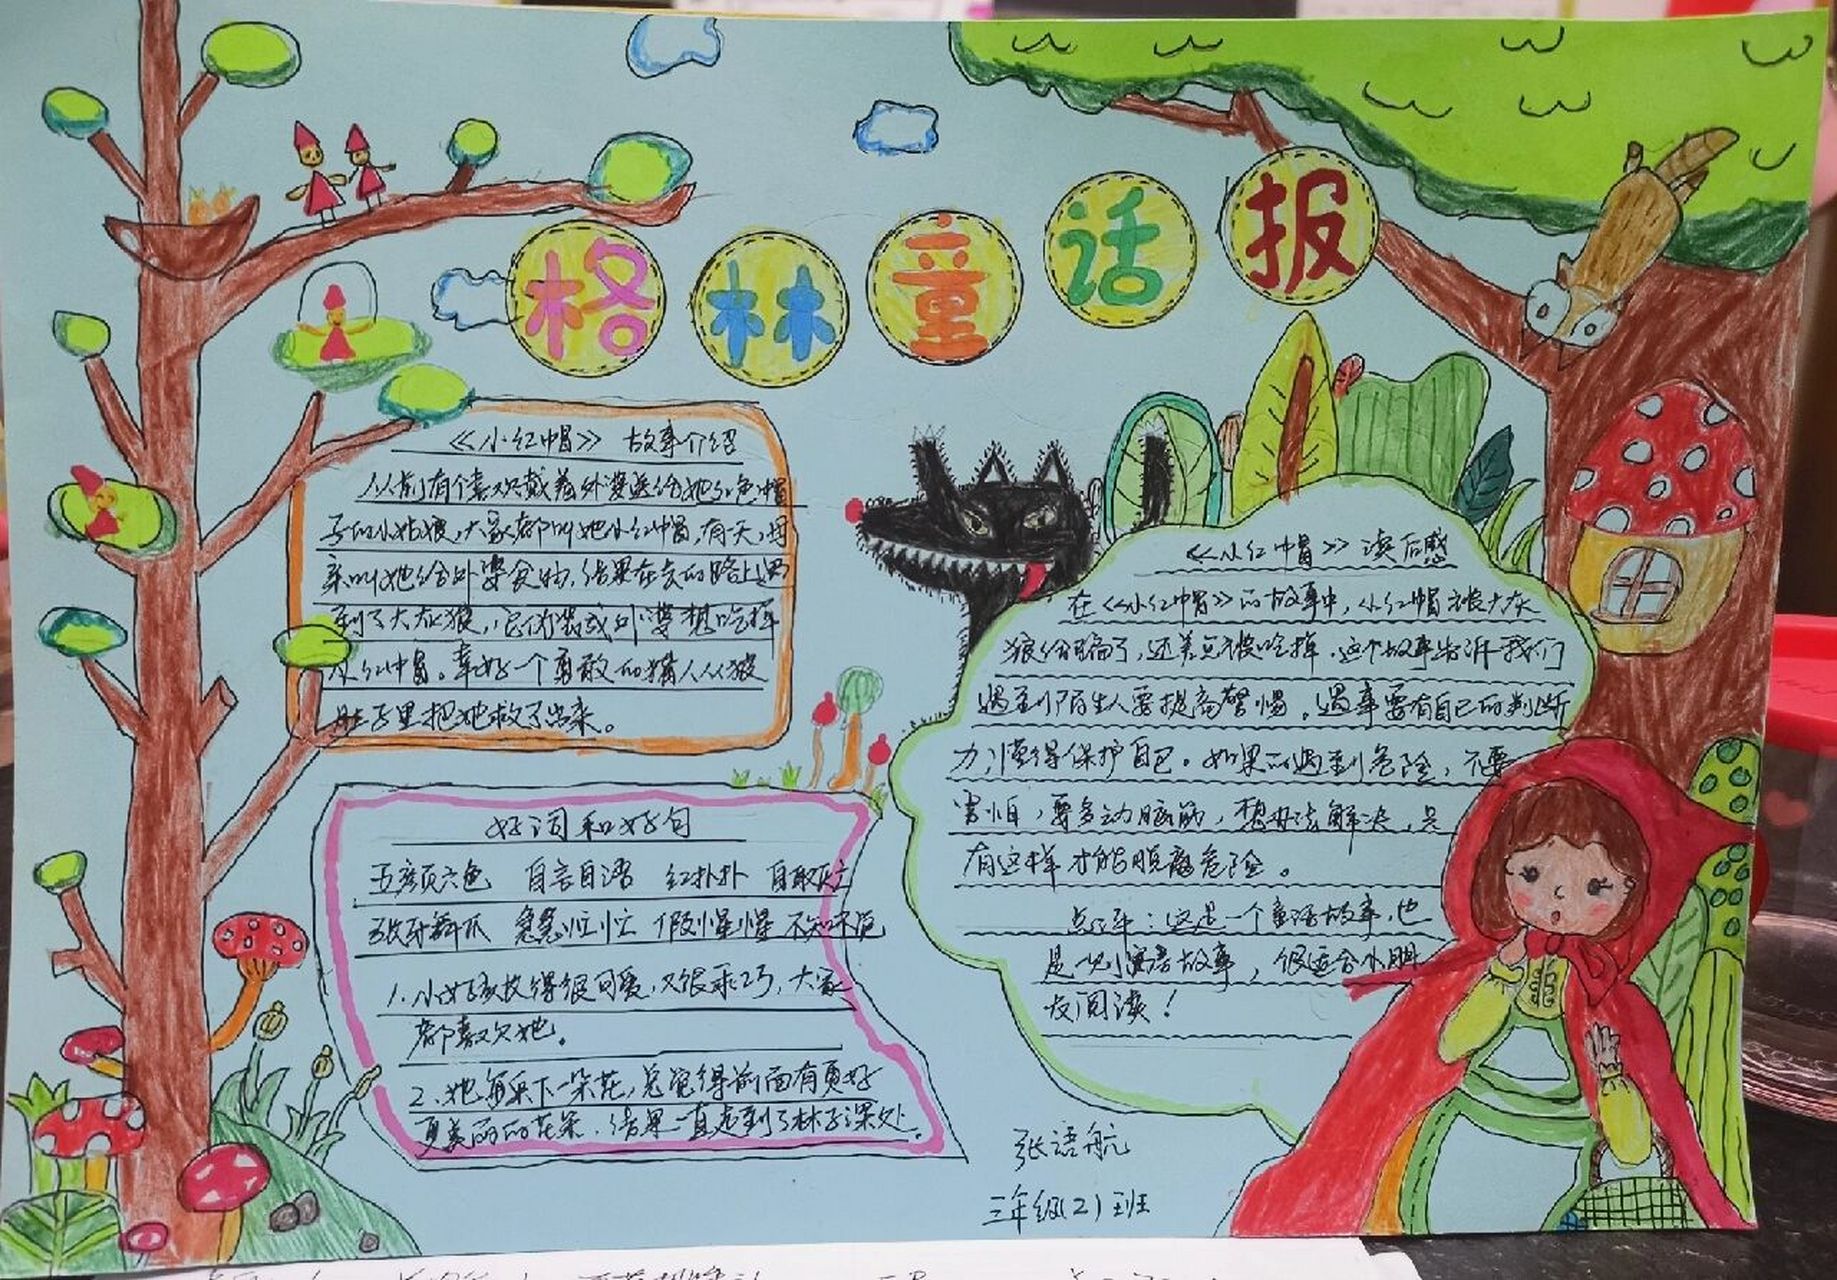 格林童话报
《小红帽》 故事介绍
从前有个喜欢戴着外婆送给她红色帽
子的小姑娘，大家都叫她小红帽，有天，母
亲叫她给外婆食物，结果在去的路上遇
到了大灰狼，它伪装成外婆想吃掉
小红帽。幸好一个勇敢的猎人从狼
肚子里把她救了出来。
好词和好句
五颜六色 自言自语 红扑扑 自取灭亡
张牙舞爪 急急忙忙 假惺惺 不知不觉
1.小女孩长得很可爱，又很乖巧，大家
都喜欢她。
2、她每采下一朵花，总觉得前面有更好
更美丽的花朵，结果一直走到了林子深处。
《小红帽》读后感
在《小红帽》的故事中，小红帽被大灰
狼给骗了，还差点被吃掉，这个故事告诉我们
遇到陌生人要提高警惕。遇事要有自己的判断
力，懂得保护自己。如果遇到危险，不要
害怕，要多动脑筋，想办法解决，只
有这样才能脱离危险。
点评：这是一个童话故事，也
是一则寓言故事，很适合小朋
友阅读！
张语航
三年级(2)班